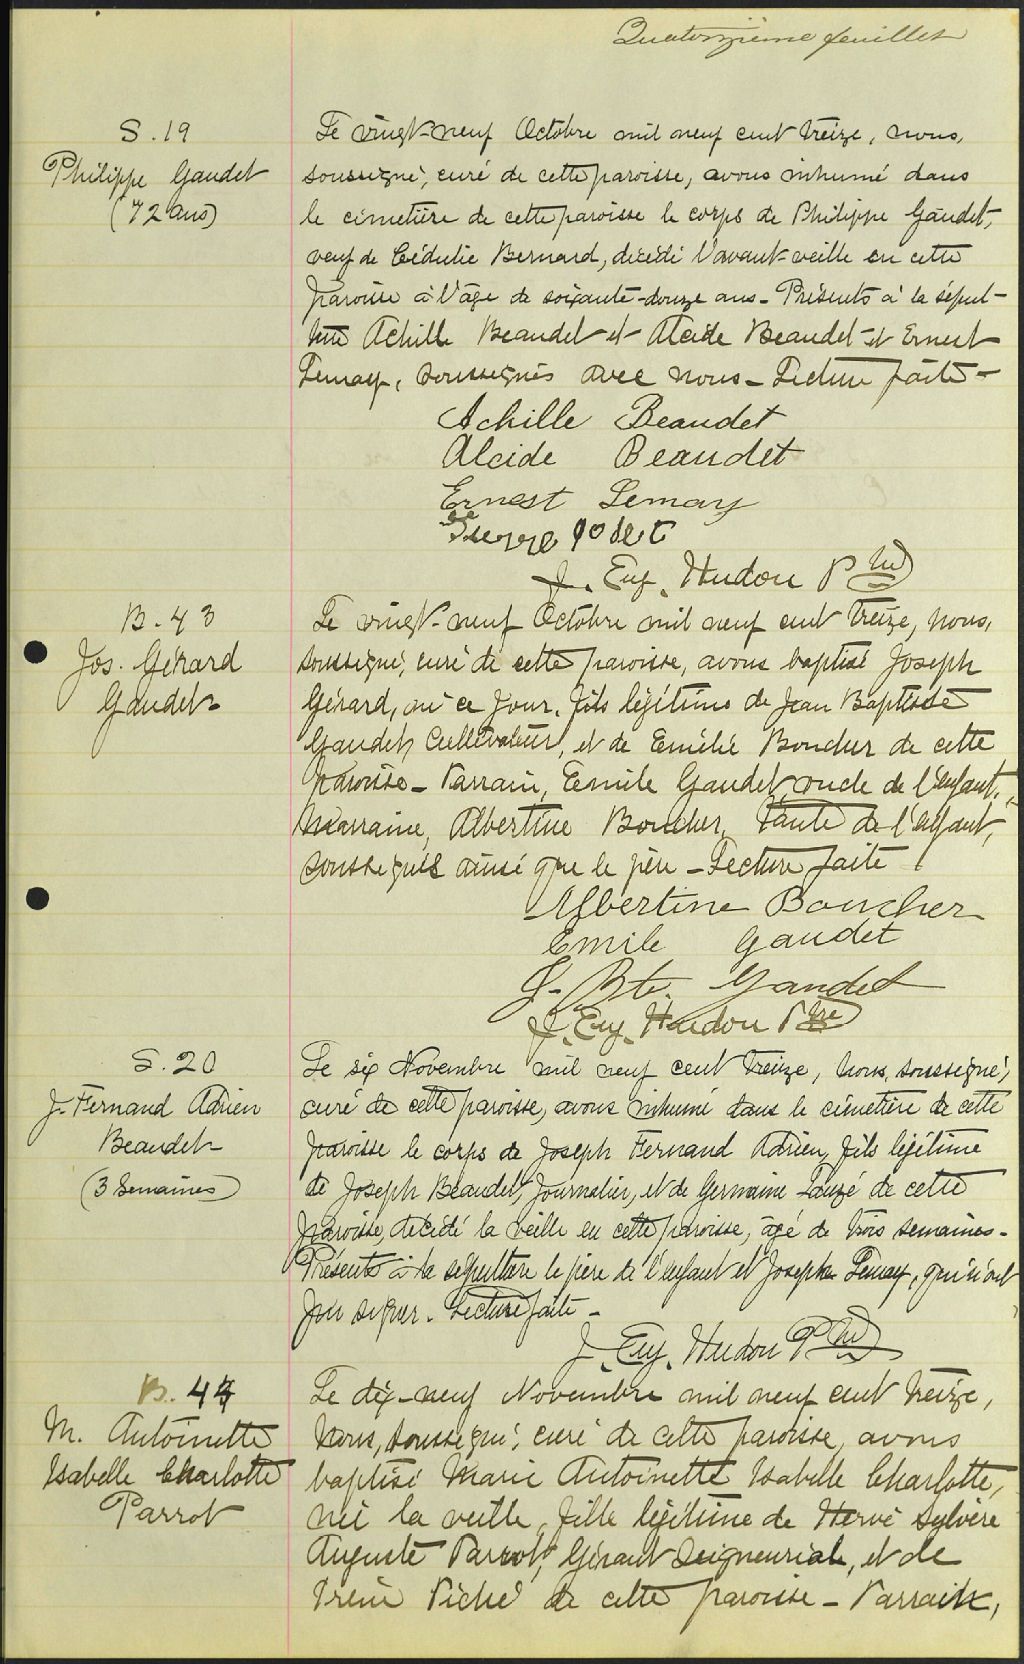 Quatorzième feuillet
S. 19
Philippe Gaudet
(72 ans)
Le vingt-neuf Octobre mil neuf cent treize, nous,
soussigné, curé de cette paroisse, avons inhumé dans
le cimetière de cette paroisse le corps de Philippe Gaudet,
veuf de Cédulie Bernard, décédé l'avant-veille en cette
paroisse à l'âge de soixante-douze ans - Présents à la sépul-
ture Achille Beaudet et Alcide Beaudet et Ernest
Lemay, soussignés avec nous - Lecture faite -
Achille Beaudet
Alcide Beaudet
Ernest Lemay
J. Eug. Hudon Ptre
B. 43
Jos. Gérard
Gaudet
Le vingt-neuf Octobre mil neuf cent treize, nous,
soussigné, curé de cette paroisse, avons baptisé Joseph
Gérard, né ce jour, fils légitime de Jean Baptiste
Gaudet, Cultivateur, et de Emélie Boucher de cette
paroisse - Parrain, Emile Gaudet, oncle de l'enfant,
Marraine, Albertine Boucher, tante de l'enfant,
soussignés ainsi que le père - Lecture faite
Albertine Boucher
Emile Gaudet
J. Bte. Gaudet
J. Eug. Hudon Ptre
S. 20
J. Fernand Adrien
Beaudet
(3 Semaines)
Le six Novembre mil neuf cent treize, nous, soussigné,
curé de cette paroisse, avons inhumé dans le cimetière de cette
paroisse le corps de Joseph Fernand Adrien, fils légitime
de Joseph Beaudet, Journalier, et de Germaine Lauzé de cette
paroisse, décédé la veille en cette paroisse, âgé de trois semaines -
Présents à la sépulture le père de l'enfant et Joseph Lemay, qui n'ont
pu signer. Lecture faite -
J. Eug. Hudon Ptre
B. 44
M. Antoinette
Isabelle Charlotte
Parrot
Le dix-neuf Novembre mil neuf cent treize,
Nous, soussigné, curé de cette paroisse, avons
baptisé Marie Antoinette Isabelle Charlotte,
née la veille, fille légitime de Hervé Sylvère
Auguste Parrot, Gérant Seigneurial, et de
Irène Piché de cette paroisse - Parrain,